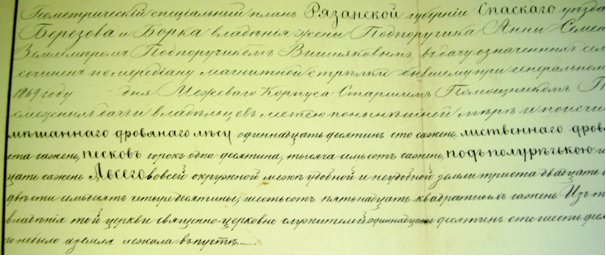 Геометрический спеціальный планъ Рязанской губерніи Спаскаго уѣзда
Березова и Борка владѣнія жены Подпоручика Анны Семен
Землемѣромъ Подпоручикомъ Вишняковымъ въ дачу означенныхъ сел
сочиненъ по меридіану магнитной стрѣлки бывшему при генеральномъ
1849 году дня Межеваго Корпуса Старшимъ Помощникомъ
межныя дачи и владѣльцевъ
мѣшаннаго дровянаго лѣсу одиннадцать десятинъ сто сажень, лиственнаго дров
ста сажень, песковъ сорокъ одна десятина, тысяча семьсотъ сажень, подъ полурѣчкою
цать сажень А всего во всей окружной межѣ удобной и неудобной земли триста двадцать
двѣсти семьдесятъ четыре десятины, шестьсотъ пятнадцать квадратныхъ сажень Изъ т
владѣнія той церкви священно-церковно служителей одиннадцать десятинъ сто шесть деся
не было а земля лежала въ пустѣ